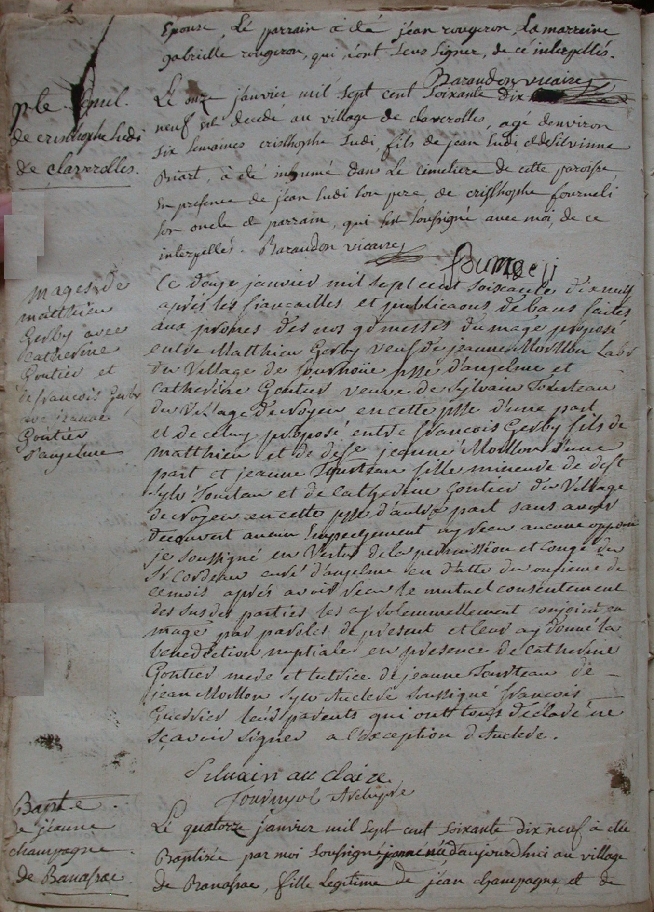 Epouse, Le parrain a été jean rougeron, la marreine
gabrielle rougeron, qui n'ont sçus signer, de ce interpellés.
Barandon vicaire
de cristhophe Ludi
de claverolles.
Le onze janvier mil sept cent soixante dix
neuf est decedé au village de claverolles, agé d'environ
six semaines cristhophe Ludi, fils de jean Ludi et de silvinne
Biart, a été inhumé dans le cimetiere de cette paroisse
en presence de jean Ludi son pere de cristhophe fourneli
son oncle et parrain, qui s'est soussigné avec moi, de ce
interpellés. Barandon vicaire
mage de
matthieu
Gerby avec
Catherine
Gontier et
de francois Gerby
avec jeanne
d'anjelme
Le douze janvier mil sept cent soixante dixneuf
après les fiancailles et publicaons de bans faites
aux prones des nos messes du mage proposé
entre Matthieu Gerby veuf de jeanne Morllon Labr
du Village de psse d'anjelme et
Catherine Gontier veuve de Sylvain Tourteau
du Village de Noyen en cette psse d'une part
et de celuy proposé entre francois Gerby fils de
matthieu et de deffe jeanne Morllon d'une
part et jeanne Tourteau fille mineure de deft
Sylv Tourteau et de Catherine Gontier du Village
de Noyen en cette psse d'autre part sans avoir
decouvert aucun Empechement ny sceu aucune opposon
je soussigné en Vertu de la permission et congé du
Sr Cordeau curé d'anjelme en datte du onzieme de
ce mois après avoir receu le mutuel consentement
des susdes parties les ay solemnellement conjoint en
mage par paroles de present et leur ay donné la
benediction nuptiale en presence de Catherine
Gontier mere et tutrice de jeanne Tourteau de
jean Morllon Sylv Auclere soussigné francois
Guerrier leurs parents qui ont tous déclaré ne
sçavoir signer a l'exception d'Auclere.
Silvain au claire
Bapt.e
de jeanne
champagne
de Banassac
Le quatorze janvier mil sept cent soixante dix neuf a eté
Baptisée par moi soussigné jeanne née d'aujourd'hui au village
de Banassac, fille legitime de jean champagne et de